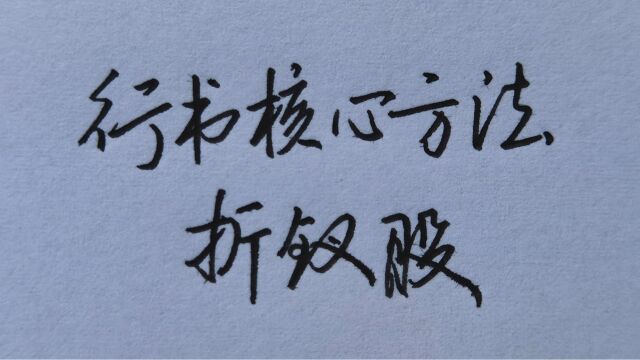 行书核心方法
折钗股